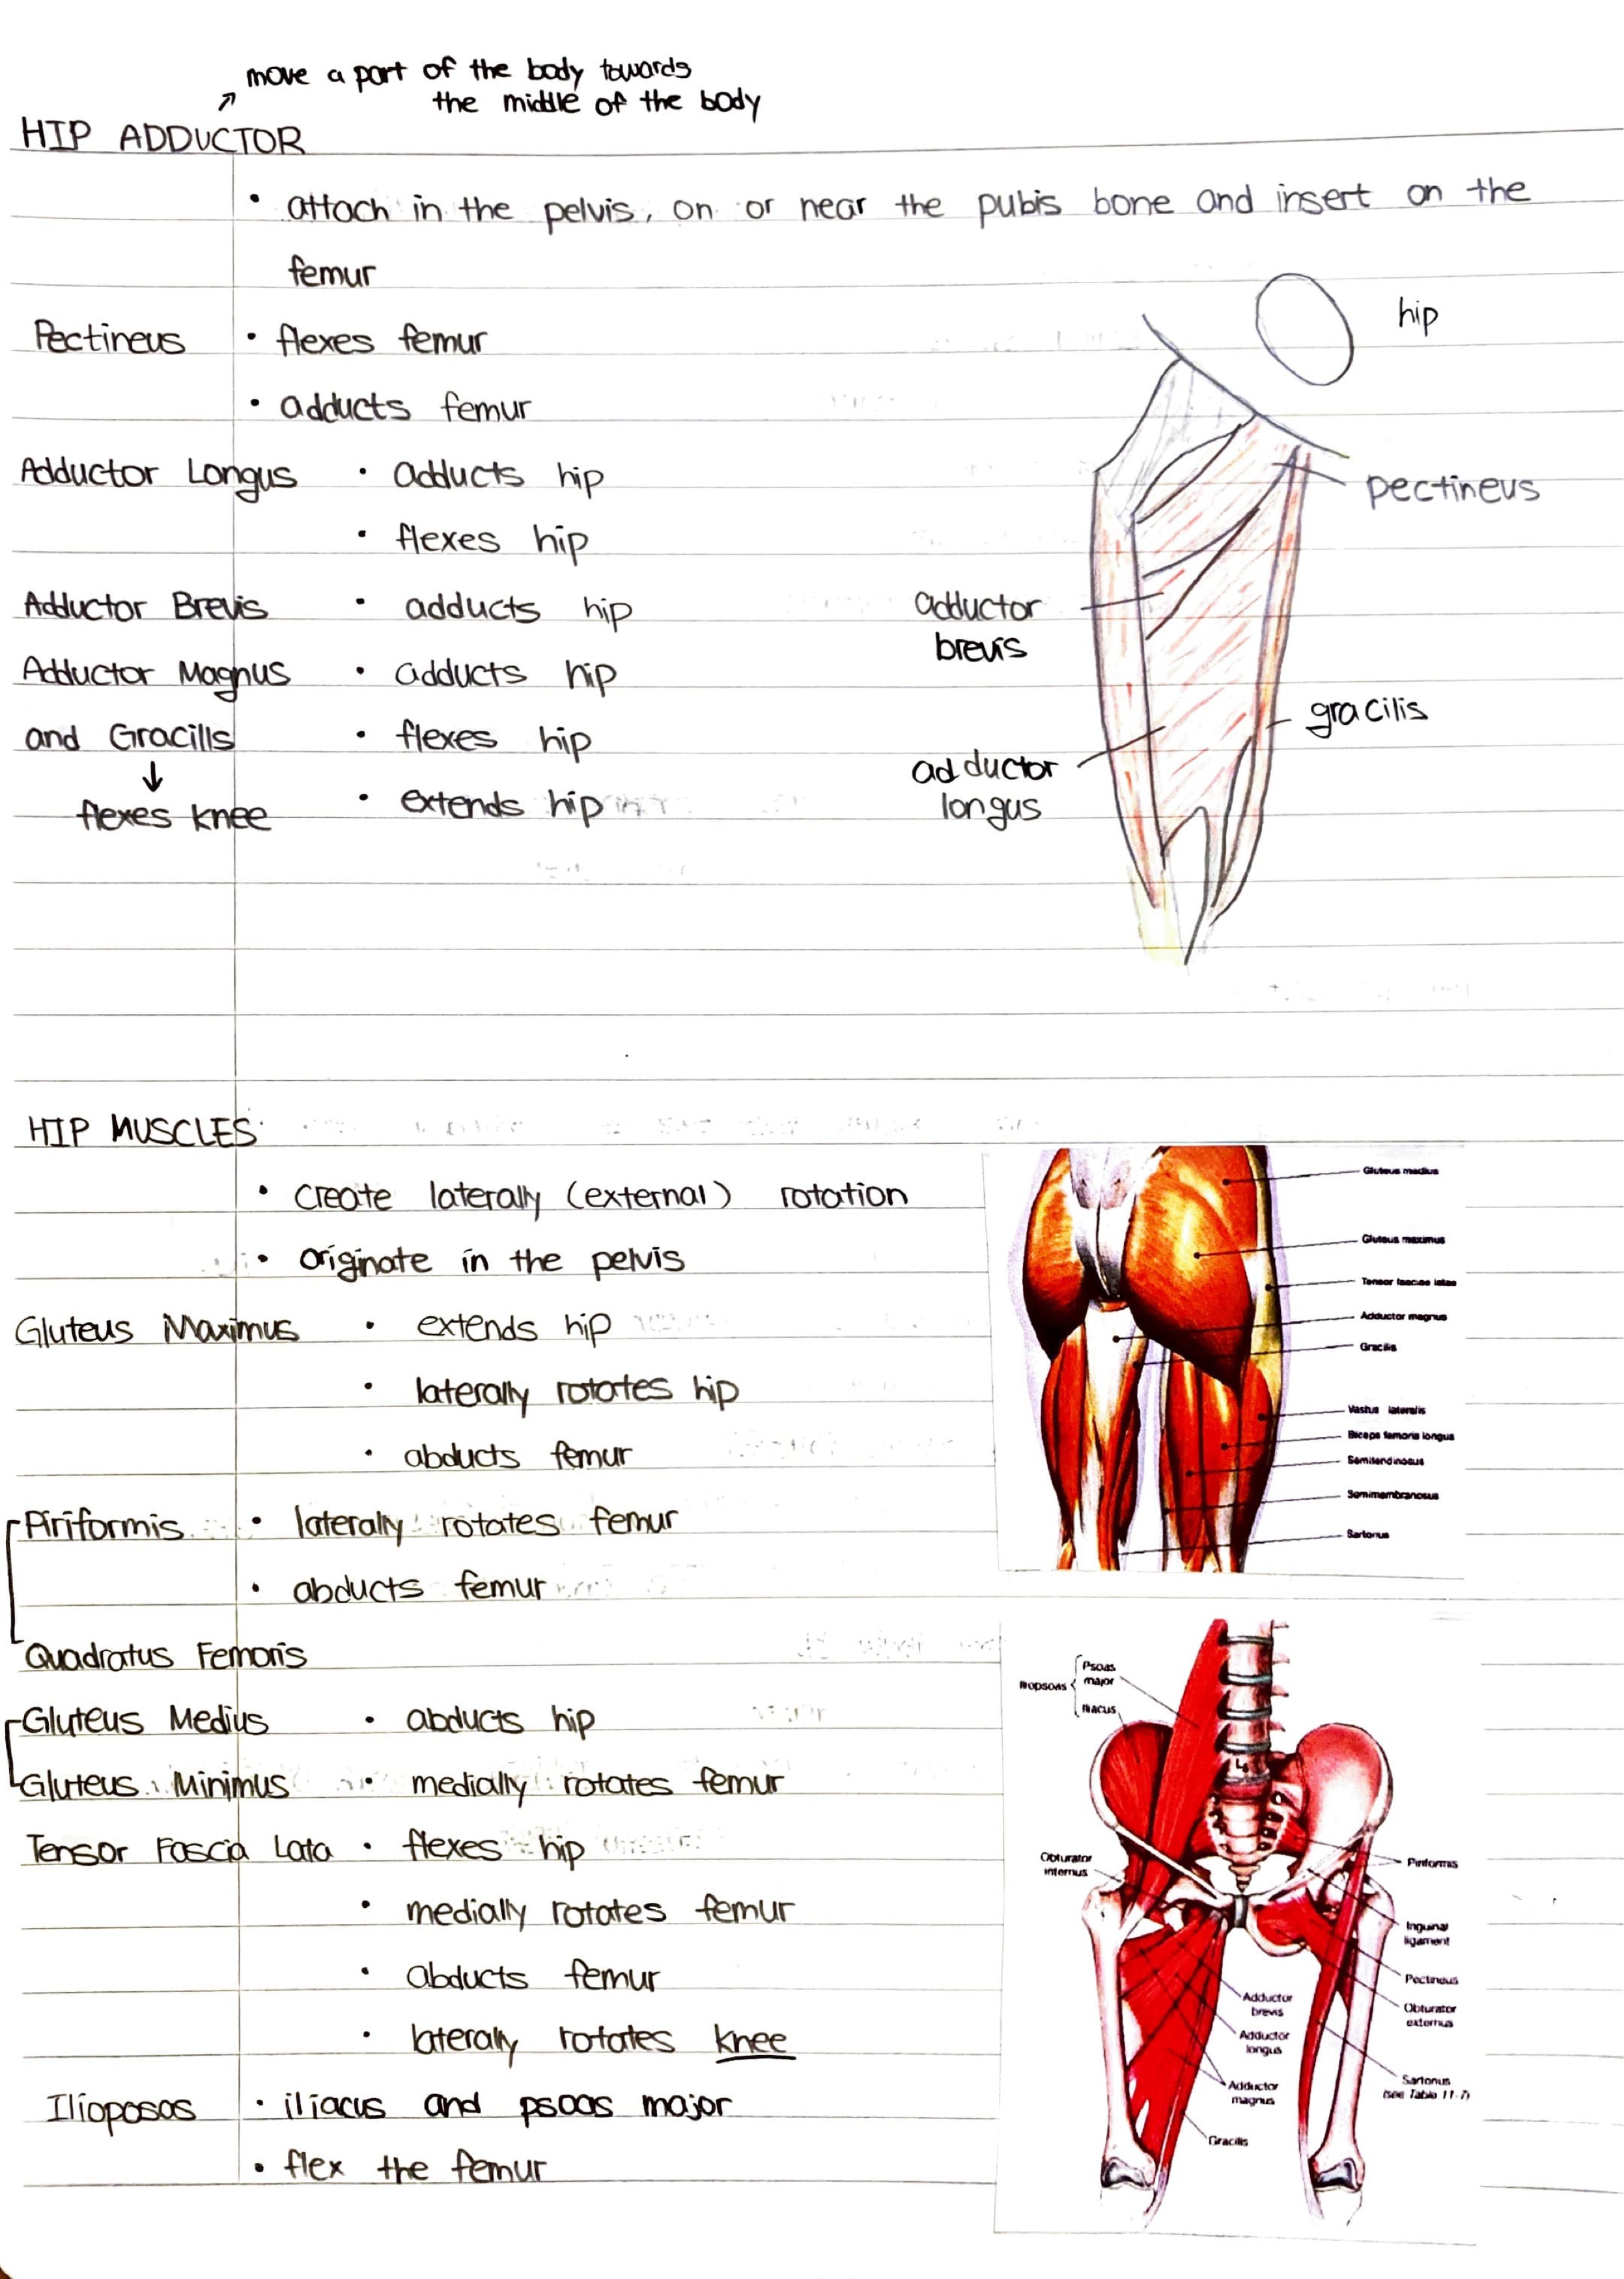 move a part of the body towards
the middle of the body
HIP ADDUCTOR
• attach in the pelvis, on or near the pubis bone and insert on the
femur
Pectineus • flexes femur
• adducts femur
Adductor Longus • adducts hip
• flexes hip
Adductor Brevis • adducts hip
Adductor Magnus • adducts hip
and Gracills • flexes hip
↓
flexes knee • extends hip
hip
pectineus
adductor
brevis
gracilis
adductor
longus
HIP MUSCLES
• create laterally (external) rotation
• originate in the pelvis
Gluteus Maximus • extends hip
• laterally rotates hip
• abducts femur
Piriformis • laterally rotates femur
• abducts femur
Quadratus Femoris
Gluteus Medius • abducts hip
Gluteus Minimus • medially rotates femur
Tensor Fascia Lata • flexes hip
• medially rotates femur
• abducts femur
• laterally rotates knee
Ilioposas • iliacus and psoas major
• flex the femur
Gluteus medius
Gluteus maximus
Tensor fasciae latae
Adductor magnus
Gracilis
Vastus lateralis
Biceps femoris longus
Semitendinosus
Semimembranosus
Sartorius
Psoas
major
Iliopsoas
Iliacus
L5
Obturator
internus
Piriformis
Inguinal
ligament
Pectineus
Obturator
externus
Adductor
brevis
Adductor
longus
Adductor
magnus
Sartorius
(see Table 11-7)
Gracilis